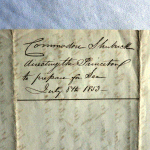 Commodore Shubrick
directing the Princeton
to prepare for Sea
July 8th 1853—